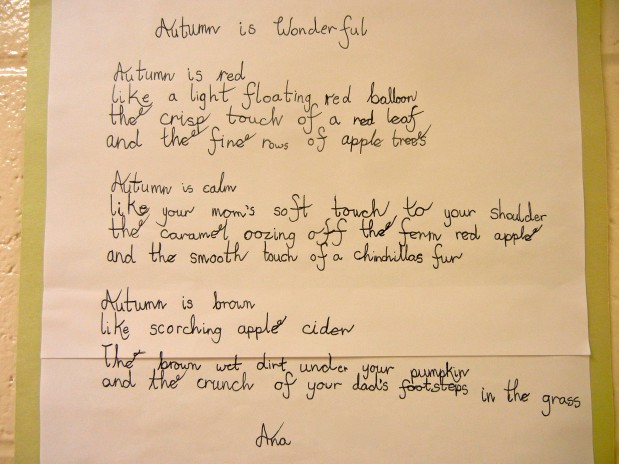 Autumn is Wonderful
Autumn is red
like a light floating red balloon
the crisp touch of a red leaf
and the fine rows of apple trees
Autumn is calm
like your mom's soft touch to your shoulder
the caramel oozing off the ferm red apple
and the smooth touch of a chinchillas fur
Autumn is brown
like scorching apple cider
The brown wet dirt under your pumpkin
and the crunch of your dad's footsteps in the grass
Ana